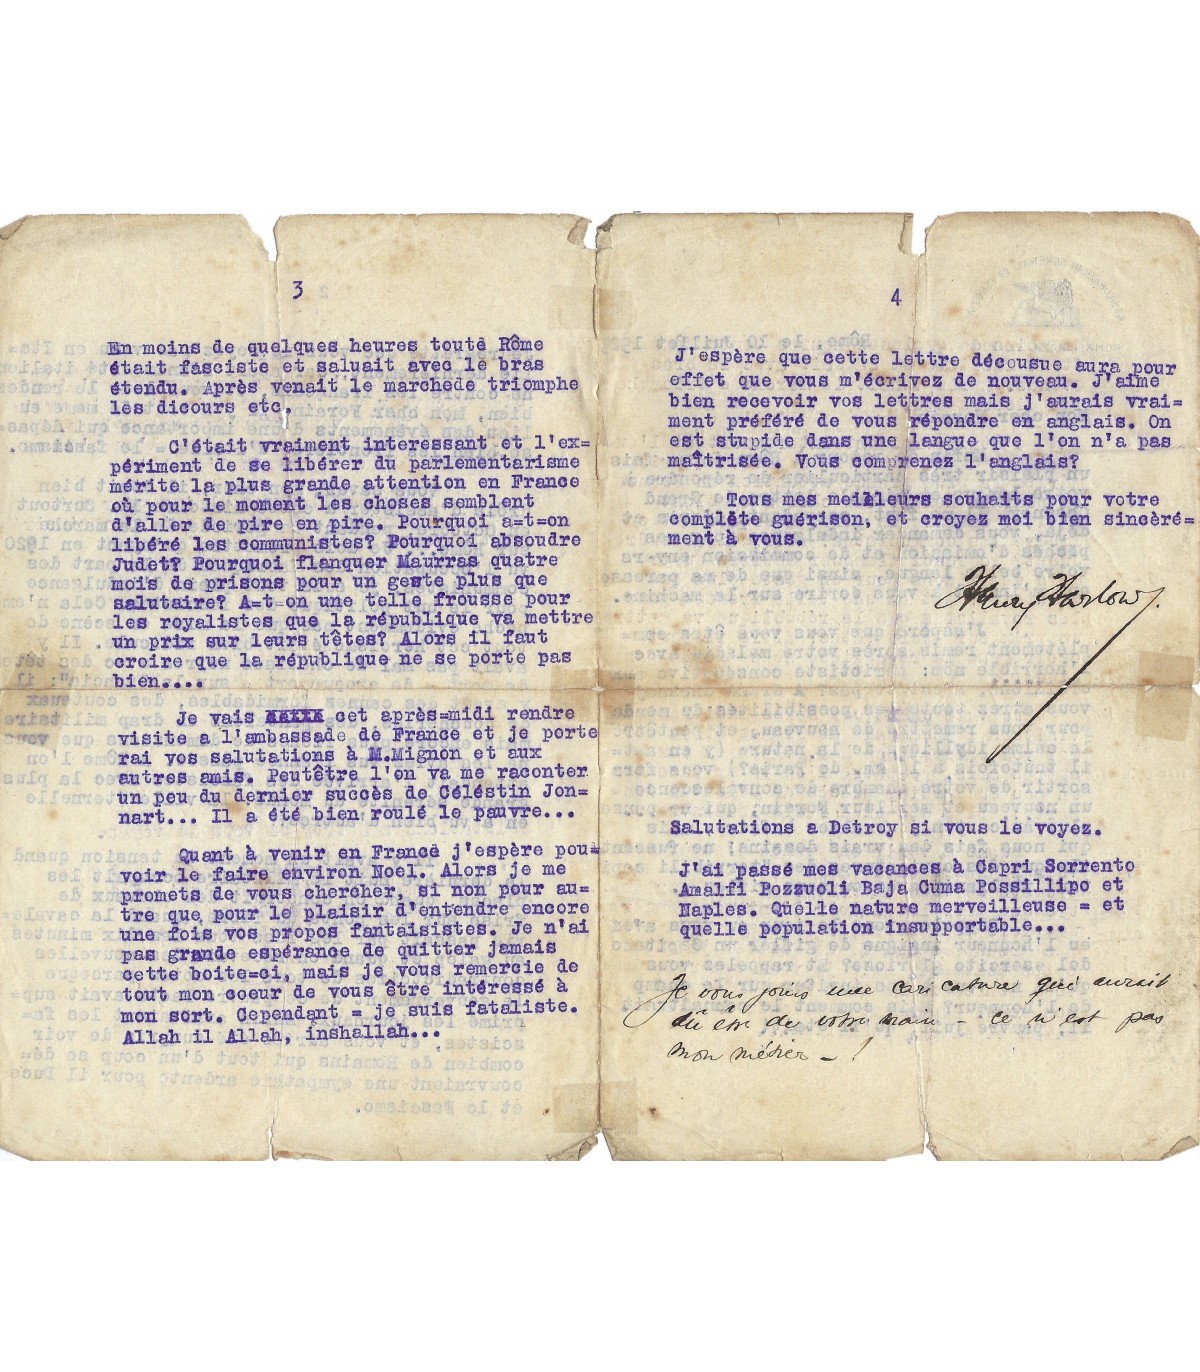 3
En moins de quelques heures toute Rôme
était fasciste et saluait avec le bras
étendu. Après venait le marchede triomphe
les dicours etc,
C'était vraiment interessant et l'ex=
périment de se libérer du parlementarisme
mérite la plus grande attention en France
où pour le moment les choses semblent
d'aller de pire en pire. Pourquoi a=t=on
libéré les communistes? Pourquoi absoudre
Judet? Pourquoi flanquer Maurras quatre
mois de prisons pour un geste plus que
salutaire? A=t=on une telle frousse pour
les royalistes que la république va mettre
un prix sur leurs têtes? Alors il faut
croire que la république ne se porte pas
bien....
Je vais xxxxx cet après=midi rendre
visite a l'ambassade de France et je porte
rai vos salutations à M.Mignon et aux
autres amis. Peutêtre l'on va me raconter
un peu du dernier succès de Céléstin Jon=
nart... Il a été bien roulé le pauvre...
Quant à venir en France j'espère pou=
voir le faire environ Noel. Alors je me
promets de vous chercher, si non pour au=
tre que pour le plaisir d'entendre encore
une fois vos propos fantaisistes. Je n'ai
pas grande espérance de quitter jamais
cette boite=ci, mais je vous remercie de
tout mon coeur de vous être intéressé à
mon sort. Cependant = je suis fataliste.
Allah il Allah, inshallah...
4
J'espère que cette lettre décousue aura pour
effet que vous m'écrivez de nouveau. J'aime
bien recevoir vos lettres mais j'aurais vrai=
ment préféré de vous répondre en anglais. On
est stupide dans une langue que l'on n'a pas
maîtrisée. Vous comprenez l'anglais?
Tous mes meilleurs souhaits pour votre
complête guérison, et croyez moi bien sincèré=
ment à vous.
Henry Harlow
Salutations a Detroy si vous le voyez.
J'ai passé mes vacances à Capri Sorrento
Amalfi Pozzuoli Baja Cuma Possillipo et
Naples. Quelle nature merveilleuse = et
quelle population insupportable...
Je vous joins une caricature qui aurait
dû être de votre main - ce n'est pas
mon métier - !